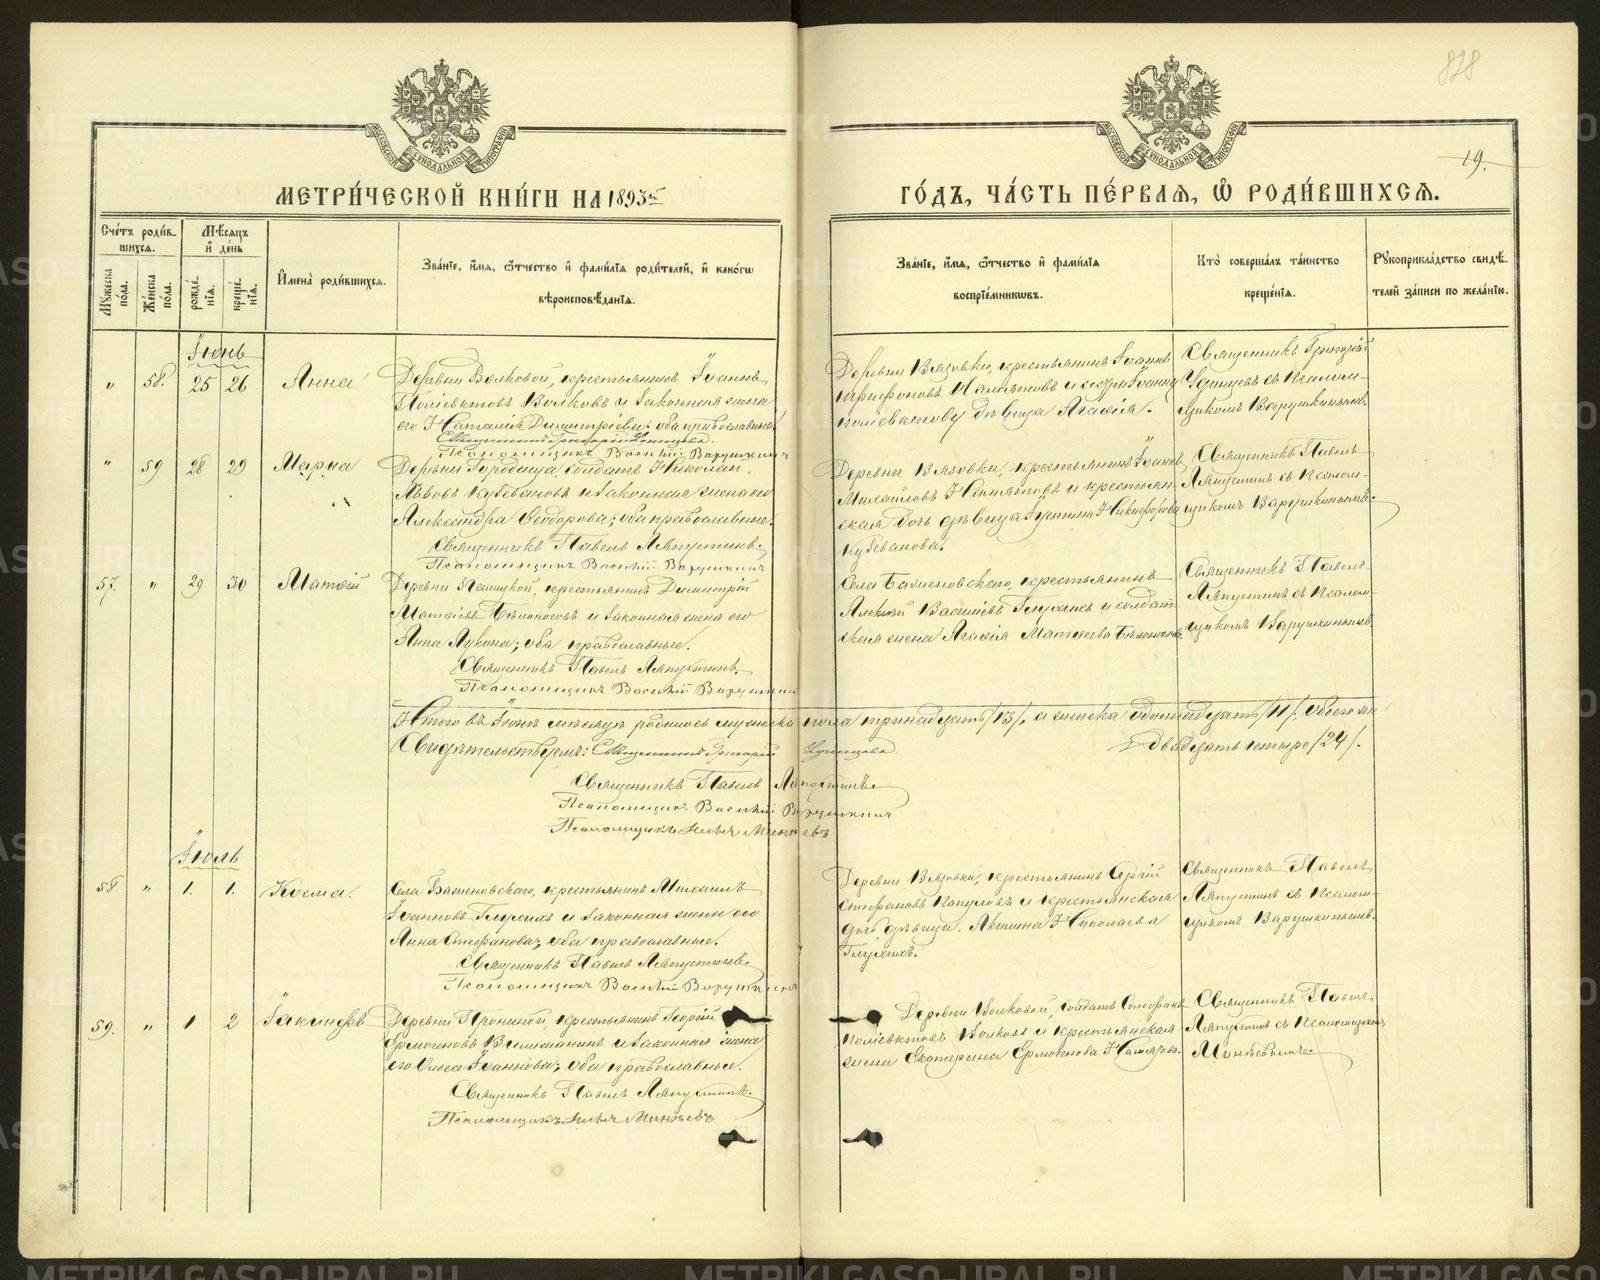 828
19.
МОСКОВСКОЙ СѴНОДАЛЬНОЙ ТИПОГРАФІИ
МЕТРИ́ЧЕСКОЙ КНИ́ГИ НА 1893й
ГО́ДЪ, ЧА́СТЬ ПЕ́РВАЯ, Ѡ РОДИ́ВШИХСЯ.
Сче́тъ роди́в-
шихся.
Мѣ́сяцъ
и де́нь
Му́жеска
пола.
Же́нска
пола.
рожде́-
нія.
креще́-
нія.
Имена̀ роди́вшихся.
Зва́нїе, и́мя, ѻ́тчество и фами́лїя роди́телей, и како́гѡ
вѣроисповѣ́данїя.
Зва́нїе, и́мя, ѻ́тчество и фами́лїя
воспрїе́мникѡвъ.
Кто̀ соверша́лъ та́инство
креще́нїя.
Рукоприкла́дство свидѣ́-
телей за́писи по жела́нїю.
Іюнь
" 58. 25 26 Анна
Деревни Волковой, крестьянинъ Іоаннъ
Поліевктовъ Волковъ и законная жена
его Наталія Димитріева; оба православные.
Священникъ Григорій
Псаломщикъ Василій Варушкинъ
Деревни Вязовки, крестьянинъ Іоаннъ
Трифоновъ
дѣвица Агафія.
Священникъ Григорій
съ Псалом-
щикомъ Варушкинымъ.
" 59 28 29 Марна
Деревни Городища, солдатъ Николай
Львовъ Кубевановъ и законная жена его
Александра Ѳеодорова; оба православные.
Священникъ Павелъ Ляпустинъ.
Псаломщикъ Василій Варушкинъ
Деревни Вязовки, крестьянинъ Іоаннъ
Михайловъ и крестьян-
ская дочь дѣвица Никифорова
Кубеванова.
Священникъ Павелъ
Ляпустинъ съ Псалом-
щикомъ Варушкинымъ.
57. " 29 30 Матѳій
Деревни крестьянинъ Димитрій
Матѳіевъ Бѣлоносовъ и законная жена его
Анна Лукина; оба православные.
Священникъ Павелъ Ляпустинъ.
Псаломщикъ Василій Варушкинъ
Села Баженовскаго, крестьянинъ
Алексій Василіевъ Глухихъ и солдат-
ская жена Агафія Матѳеева Бѣлоносова
Священникъ Павелъ
Ляпустинъ съ Псалом-
щикомъ Варушкинымъ
Итого въ Іюнѣ мѣсяцѣ родилось мужеска пола тринадцать /13/, а женска одиннадцать /11/. Обоего же
двадцать четыре /24/.
Свидѣтельствуемъ: Священникъ Григорій
Священникъ Павелъ Ляпустинъ.
Псаломщикъ Василій Варушкинъ
Псаломщикъ Илья Минѣевъ
Іюль
58 " 1. 1. Косма.
Села Баженовскаго, крестьянинъ Михаилъ
Іоанновъ Глухихъ и законная жена его
Анна Стефанова; оба православные.
Священникъ Павелъ Ляпустинъ.
Псаломщикъ Василій Варушкинъ
Деревни Вязовки, крестьянинъ Сергій
Стефановъ Папуловъ и крестьянская
дочь дѣвица Николаева
Глухихъ.
Священникъ Павелъ
Ляпустинъ съ Псалом-
щикомъ Варушкинымъ.
59. " 1 2 Іакинфъ
Деревни Прониной, крестьянинъ Георгій
Ермогеновъ и законная жена
его Ольга Іоаннова; оба православные.
Священникъ Павелъ Ляпустинъ.
Псаломщикъ Илья Минѣевъ
Деревни Волковой, солдатъ
Поліевктовъ Волковъ и крестьянская
жена Екатерина Ермогенова
Священникъ Павелъ
Ляпустинъ съ Псаломщикомъ
Минѣевымъ.
METRIKI.GASO-URAL.RU